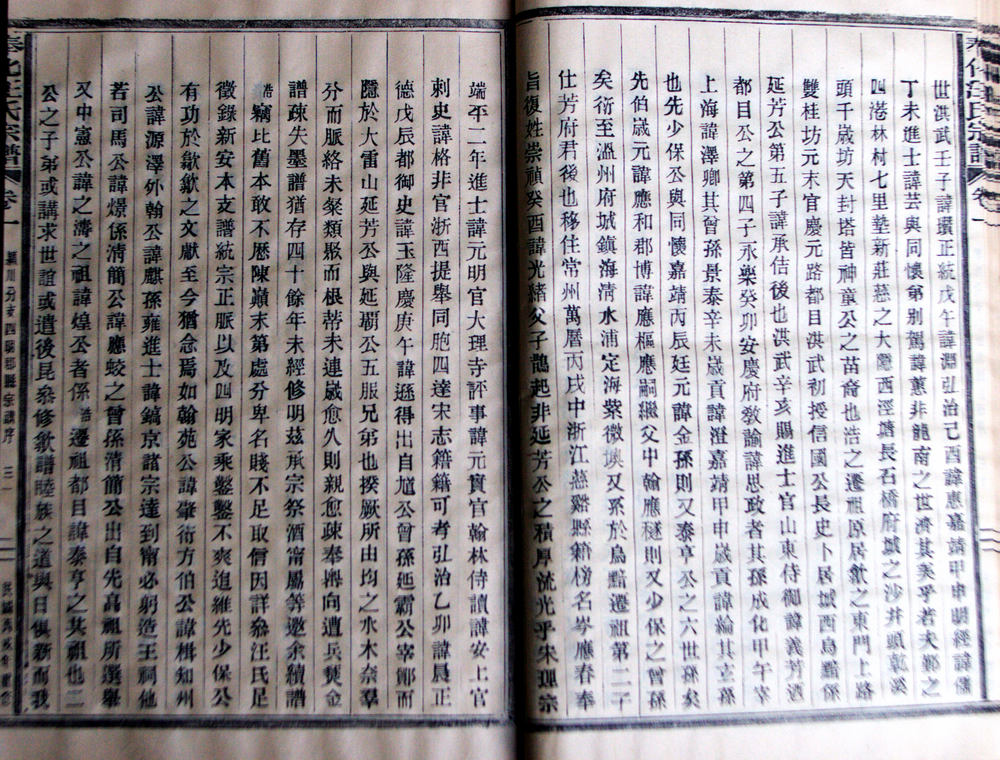 奉化汪氏宗譜 卷一
世洪武壬子諱瓚正統戊午諱淵弘治己酉諱惠嘉靖甲申明經諱儒
丁未進士諱芸與同懷弟別駕諱蕙非龍南之世濟其美乎若夫鄞之
四港林村七里墊新莊慈之大隱西涇塘長石橋府城之沙井頭章溪
頭千歲坊天封塔皆神童公之苗裔也浩之遷祖原居歙之東門上路
雙桂坊元末官慶元路都目洪武初授信國公長史卜居城西烏黯係
延芳公第五子諱承佶後也洪武辛亥賜進士官山東侍御諱義芳酒
都目公之第四子永樂癸卯安慶府教諭諱思政者其孫成化甲午宰
上海諱澤卿其曾孫景泰辛未歲貢諱澄嘉靖甲申歲貢諱綸其玄孫
也先少保公與同懷嘉靖丙辰廷元諱金孫則又泰亨公之六世孫矣
先伯歲元諱應和郡博諱應樞應嗣繼父中翰應檖則又少保之曾孫
矣衍至溫州府城鎮海清水浦定海紫微墺又系於烏黯遷祖第二子
仕芳府君後也移住常州萬曆丙戌中浙江慈谿縣籍榜名岑應春奉
旨復姓崇禎癸酉諱光緒父子鵲起非延芳公之積厚流光乎宋理宗
端平二年進士諱元明官大理寺評事諱元實官翰林侍讀諱安上官
刺史諱格非官浙西提舉同胞四達宋志籍籍可考弘治乙卯諱晨正
德戊辰都御史諱玉隆慶庚午諱遜得出自馗公曾孫延霸公宰鄮而
隱於大雷山延芳公與延霸公五服兄弟也揆厥所由均之水木奈羣
分而脈絡未粲類聚而根蒂未連歲愈久則親愈疎奉揖向遭兵燹金
譜疎失墨譜猶存四十餘年未經修明茲承宗祭酒甯屬等邀余續譜
浩竊比舊本敢不歷陳巔末第處分卑名賤不足取信因詳參汪氏足
徵錄新安本支譜統宗正脈以及四明家乘鑿鑿不爽追維先少保公
有功於歙歙之文獻至今猶念焉如翰苑公諱肇衍方伯公諱楫知州
公諱源澤外翰公諱麒孫雍進士諱鎬京諸宗達到甯必躬造王祠他
若司馬公諱燝係清簡公諱應蛟之曾孫清簡公出自先高祖所選舉
又中憲公諱之濤之祖諱煌公者係浩遷祖都目諱泰亨之其祖也二
公之子弟或講求世誼或遺後昆參修歙譜睦族之道與日俱新而我
奉化汪氏宗譜 卷一 潁川分支四明鄞縣宗譜序 三